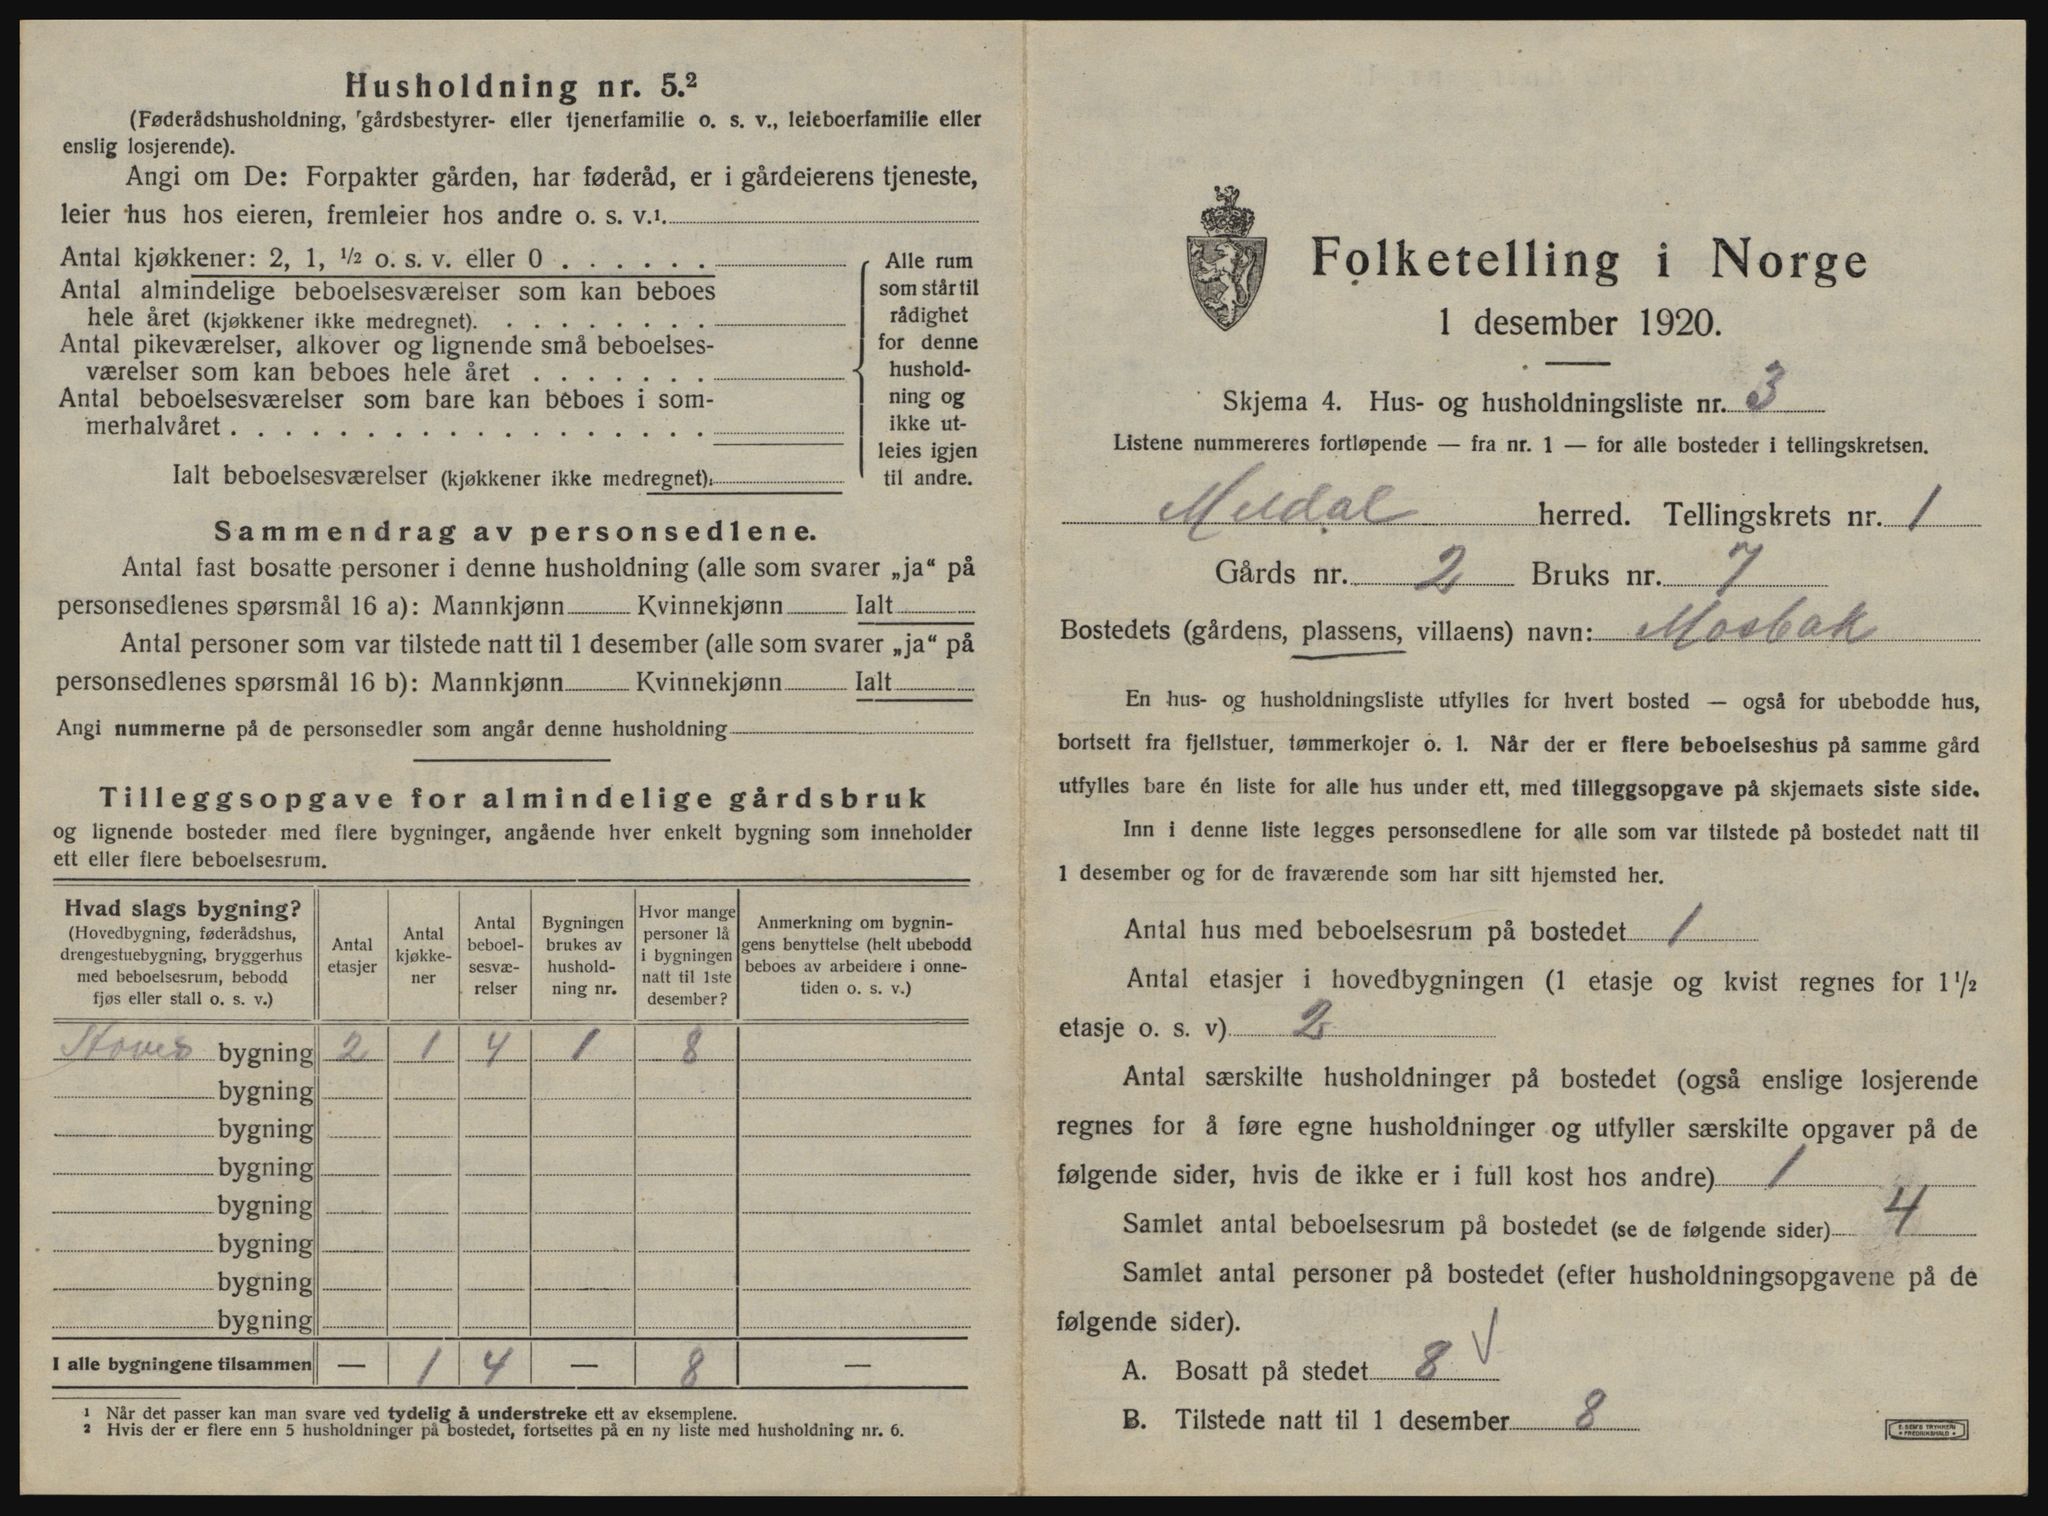 Husholdning nr. 5.²
(Føderådshusholdning, gårdsbestyrer- eller tjenerfamilie o. s. v., leieboerfamilie eller
enslig losjerende).
Angi om De: Forpakter gården, har føderåd, er i gårdeierens tjeneste,
leier hus hos eieren, fremleier hos andre o. s. v.¹
Antal kjøkkener: 2, 1, ½ o. s. v. eller 0 . . . . . .
Antal almindelige beboelsesværelser som kan beboes
hele året (kjøkkener ikke medregnet). . . . . . . . .
Antal pikeværelser, alkover og lignende små beboelses-
værelser som kan beboes hele året . . . . . . .
Antal beboelsesværelser som bare kan beboes i som-
merhalvåret . . . . . . . . . . . . . . . . . .
Ialt beboelsesværelser (kjøkkener ikke medregnet):
Alle rum
som står til
rådighet
for denne
hushold-
ning og
ikke ut-
leies igjen
til andre.
Sammendrag av personsedlene.
Antal fast bosatte personer i denne husholdning (alle som svarer „ja“ på
personsedlenes spørsmål 16 a): Mannkjønn Kvinnekjønn Ialt
Antal personer som var tilstede natt til 1 desember (alle som svarer „ja“ på
personsedlenes spørsmål 16 b): Mannkjønn Kvinnekjønn Ialt
Angi nummerne på de personsedler som angår denne husholdning
Tilleggsopgave for almindelige gårdsbruk
og lignende bosteder med flere bygninger, angående hver enkelt bygning som inneholder
ett eller flere beboelsesrum.
Hvad slags bygning?
(Hovedbygning, føderådshus,
drengestuebygning, bryggerhus
med beboelsesrum, bebodd
fjøs eller stall o. s. v.)
Antal
etasjer
Antal
kjøkke-
ner
Antal
beboel-
sesvæ-
relser
Bygningen
brukes av
hushold-
ning nr.
Hvor mange
personer lå
i bygningen
natt til 1ste
desember?
Anmerkning om bygnin-
gens benyttelse (helt ubebodd
beboes av arbeidere i onne-
tiden o. s. v.)
bygning 2 1 4 1 8
bygning
bygning
bygning
bygning
bygning
bygning
bygning
I alle bygningene tilsammen — 1 4 — 8 —
¹ Når det passer kan man svare ved tydelig å understreke ett av eksemplene.
² Hvis der er flere enn 5 husholdninger på bostedet, fortsettes på en ny liste med husholdning nr. 6.
Folketelling i Norge
1 desember 1920.
Skjema 4. Hus- og husholdningsliste nr. 3
Listene nummereres fortløpende — fra nr. 1 — for alle bosteder i tellingskretsen.
Meldal herred. Tellingskrets nr. 1
Gårds nr. 2 Bruks nr. 7
Bostedets (gårdens, plassens, villaens) navn: Mosbak
En hus- og husholdningsliste utfylles for hvert bosted — også for ubebodde hus,
bortsett fra fjellstuer, tømmerkojer o. l. Når der er flere beboelseshus på samme gård
utfylles bare én liste for alle hus under ett, med tilleggsopgave på skjemaets siste side.
Inn i denne liste legges personsedlene for alle som var tilstede på bostedet natt til
1 desember og for de fraværende som har sitt hjemsted her.
Antal hus med beboelsesrum på bostedet 1
Antal etasjer i hovedbygningen (1 etasje og kvist regnes for 1½
etasje o. s. v) 2
Antal særskilte husholdninger på bostedet (også enslige losjerende
regnes for å føre egne husholdninger og utfyller særskilte opgaver på de
følgende sider, hvis de ikke er i full kost hos andre) 1
Samlet antal beboelsesrum på bostedet (se de følgende sider) 4
Samlet antal personer på bostedet (efter husholdningsopgavene på de
følgende sider).
A. Bosatt på stedet 8 √
B. Tilstede natt til 1 desember 8